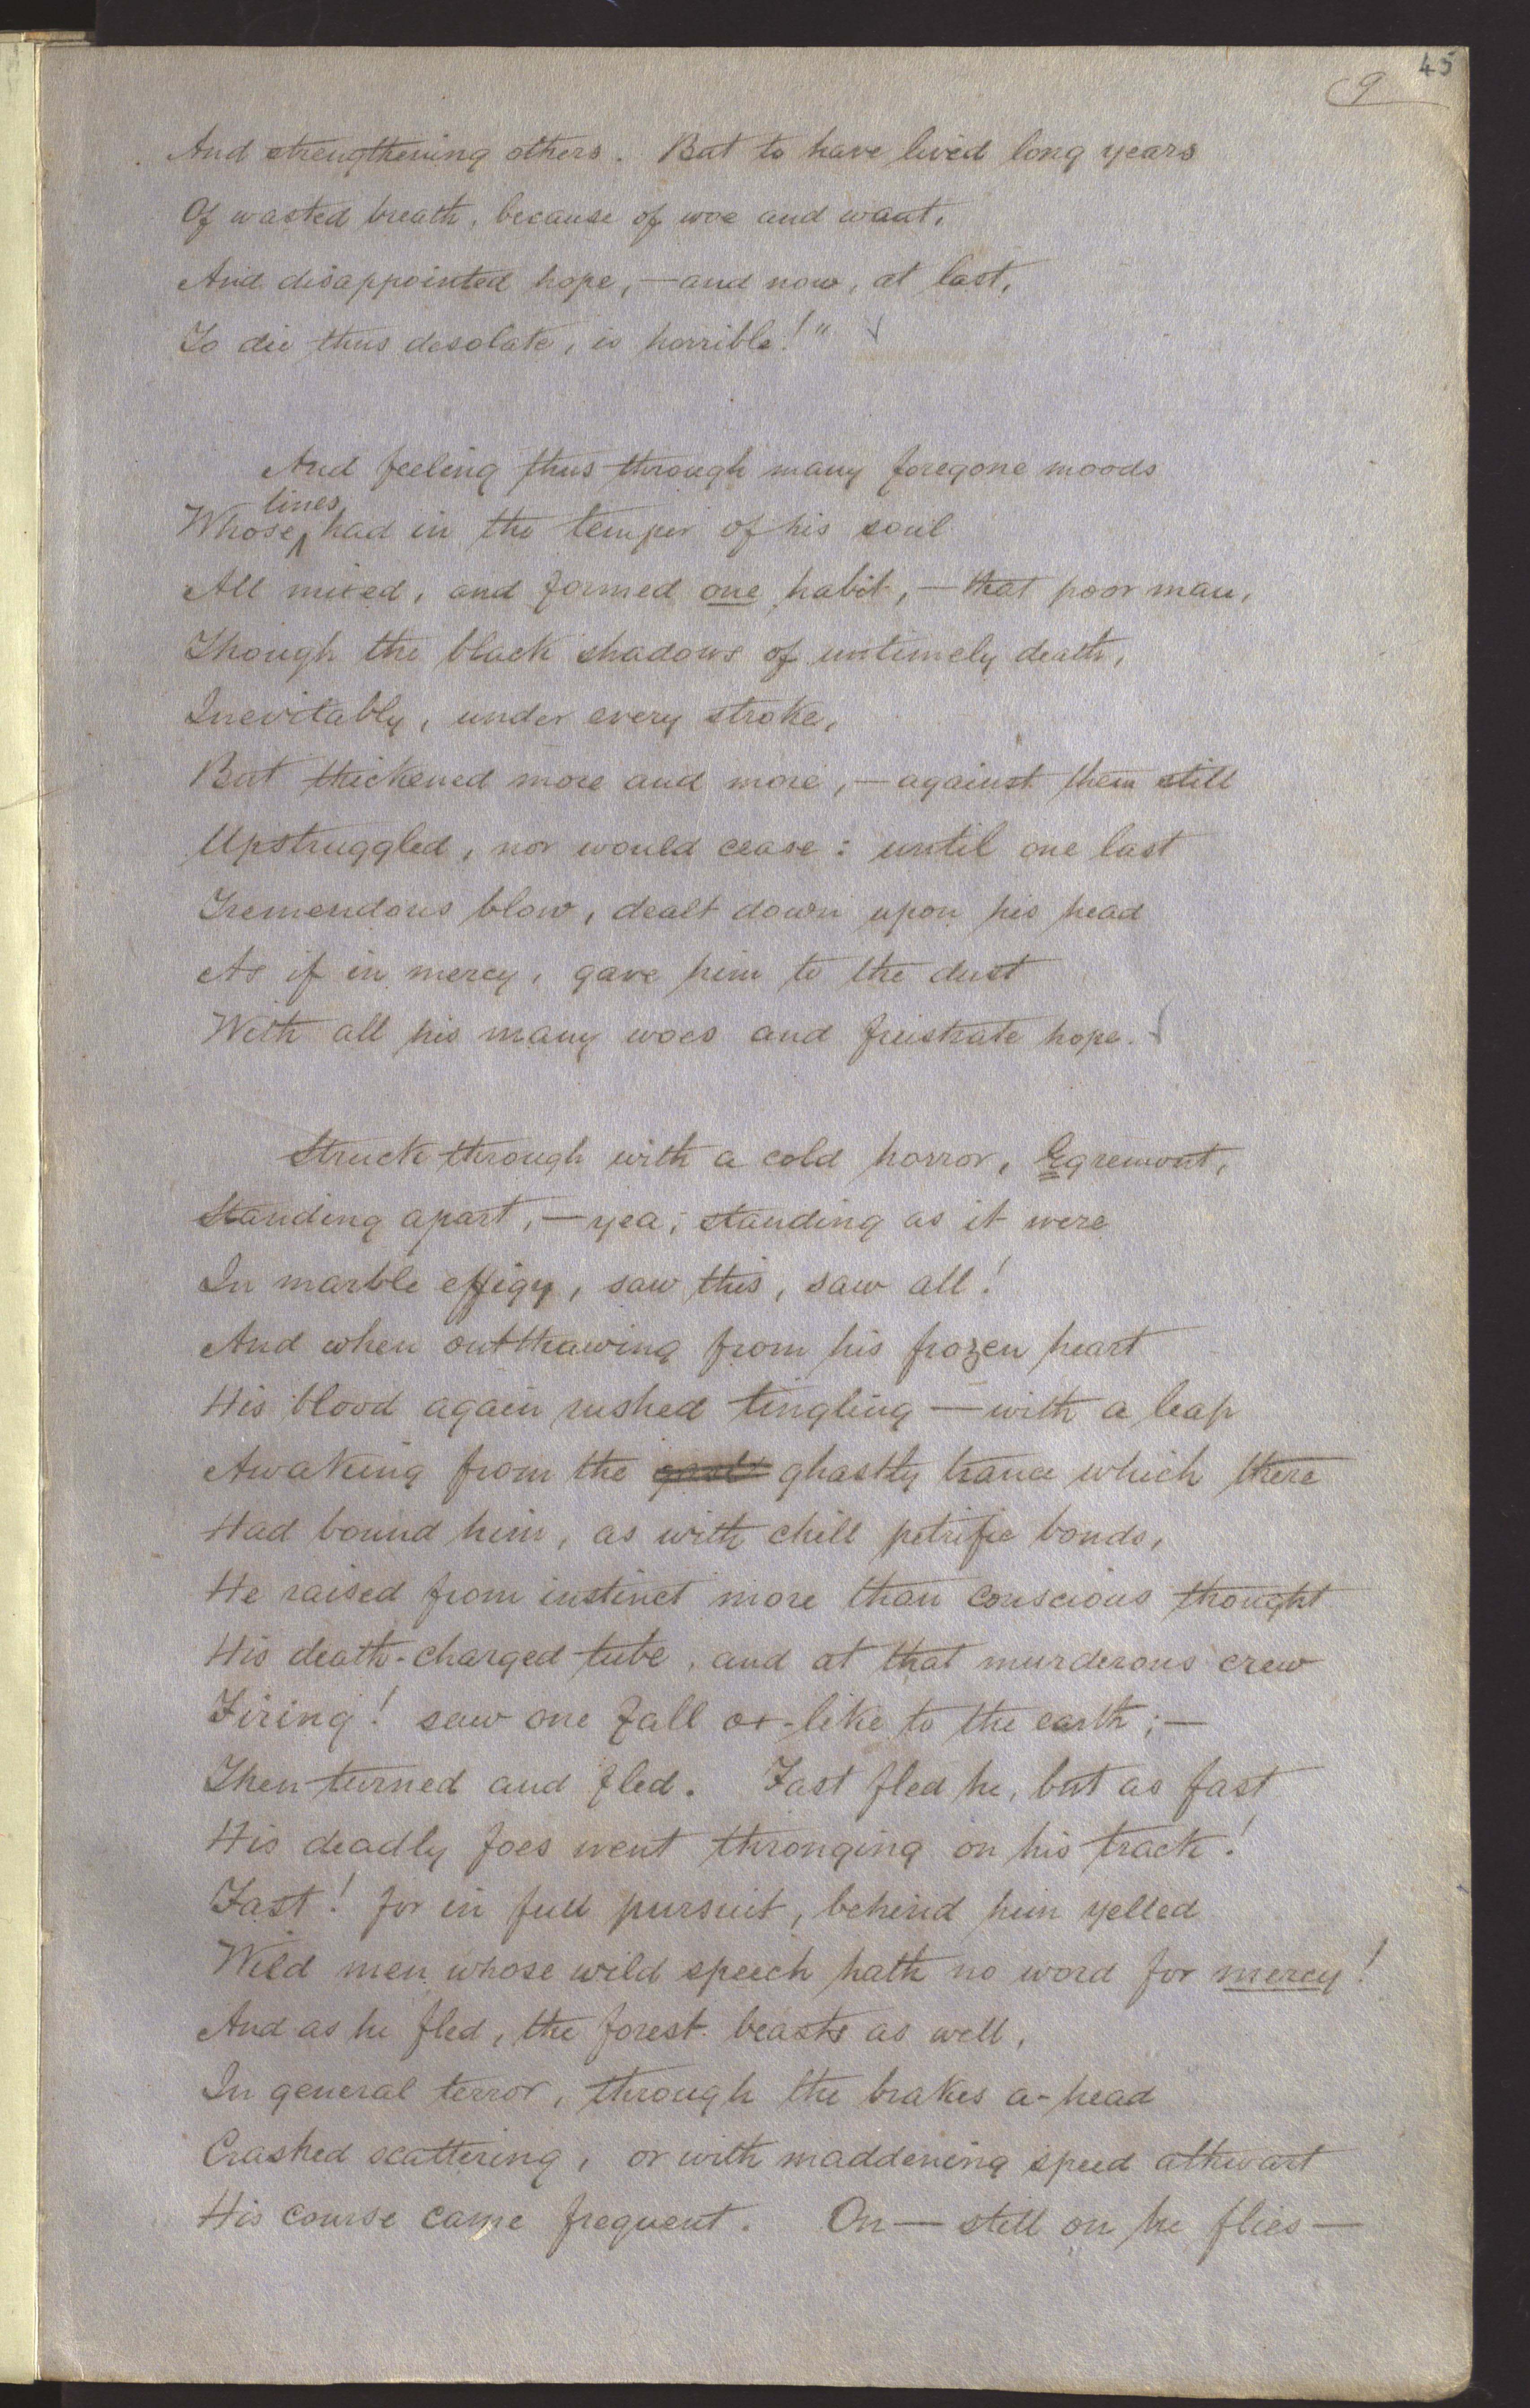 45
9
And strengthening others. But to have lived long years
Of wasted breath, because of woe and want,
And disappointed hope,—and now, at last,
To die thus desolate, is horrible!"
And feeling thus through many foregone moods
lines
Whose had in the temper of his soul
All mixed, and formed one habit,—that poor man,
Though the black shadows of untimely death,
Inevitably, under every stroke,
But thickened more and more,—against them still
Upstruggled, nor would cease: until one last
Tremendous blow, dealt down upon his head
As if in mercy, gave him to the dust
With all his many woes and frustrate hope.
Struck through with a cold horror, Egremont,
Standing apart,—yea, standing as it were
In marble effigy, saw this, saw all!
And when outthawing from his frozen heart
His blood again rushed tingling—with a leap
Awaking from the ghastly trance which there
Had bound him, as with chill petrific bonds,
He raised from instinct more than conscious thought
His death-charged tube, and at that murderous crew
Firing! saw one fall ox-like to the earth;—
Then turned and fled. Fast fled he, but as fast
His deadly foes went thronging on his track!
Fast! for in full pursuit, behind him yelled
Wild men whose wild speech hath no word for mercy!
And as he fled, the forest beasts as well,
In general terror, through the brakes a-head
Crashed scattering, or with maddening speed athwart
His course came frequent. On—still on he flies—